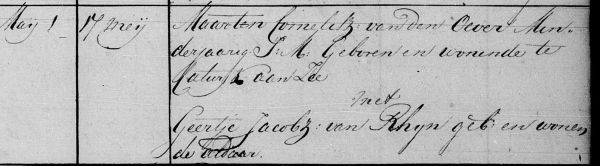 May 1 17 meij Maarten Cornelisz van den Oever Min-
derjaarig J:M: Geboren en wonende te
Catwijk aan Zee
met
Geertje Jacobz: van Rhyn geb: en wonen
de aldaar.